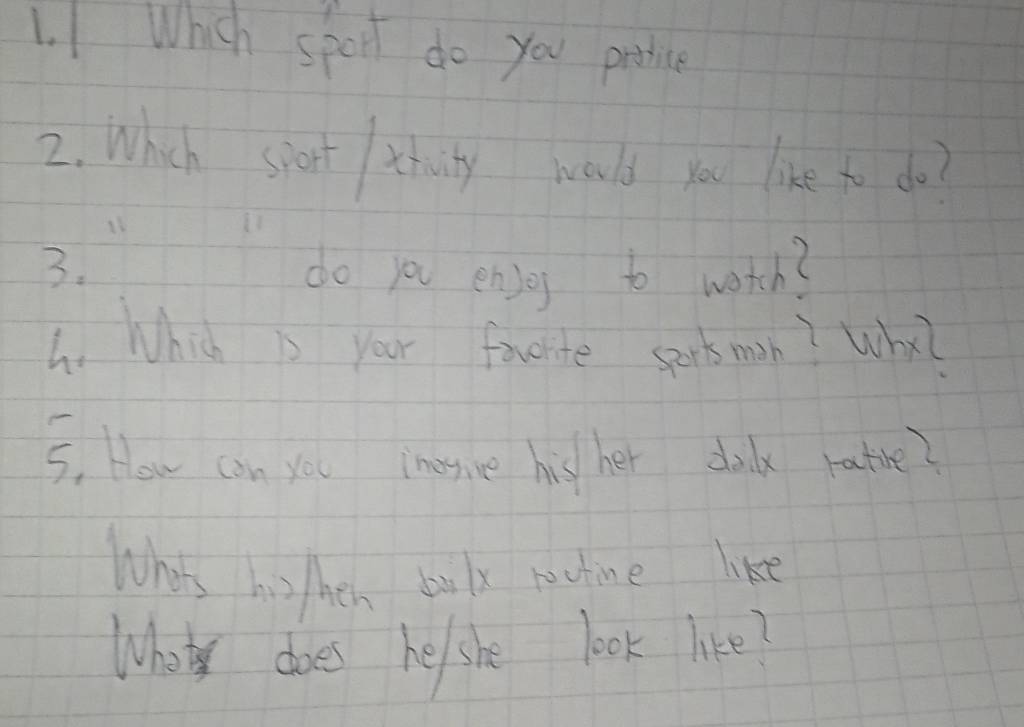 1.1 Which sport do you pratice
2. Which sport/xtivity would you like to do?
" "
3. do you enjoy to watch?
4. Which is your favorite sportsman? Why?
5. How can you imagine his/her daily routine?
Whats his/her daily routine like
What does he/she look like?